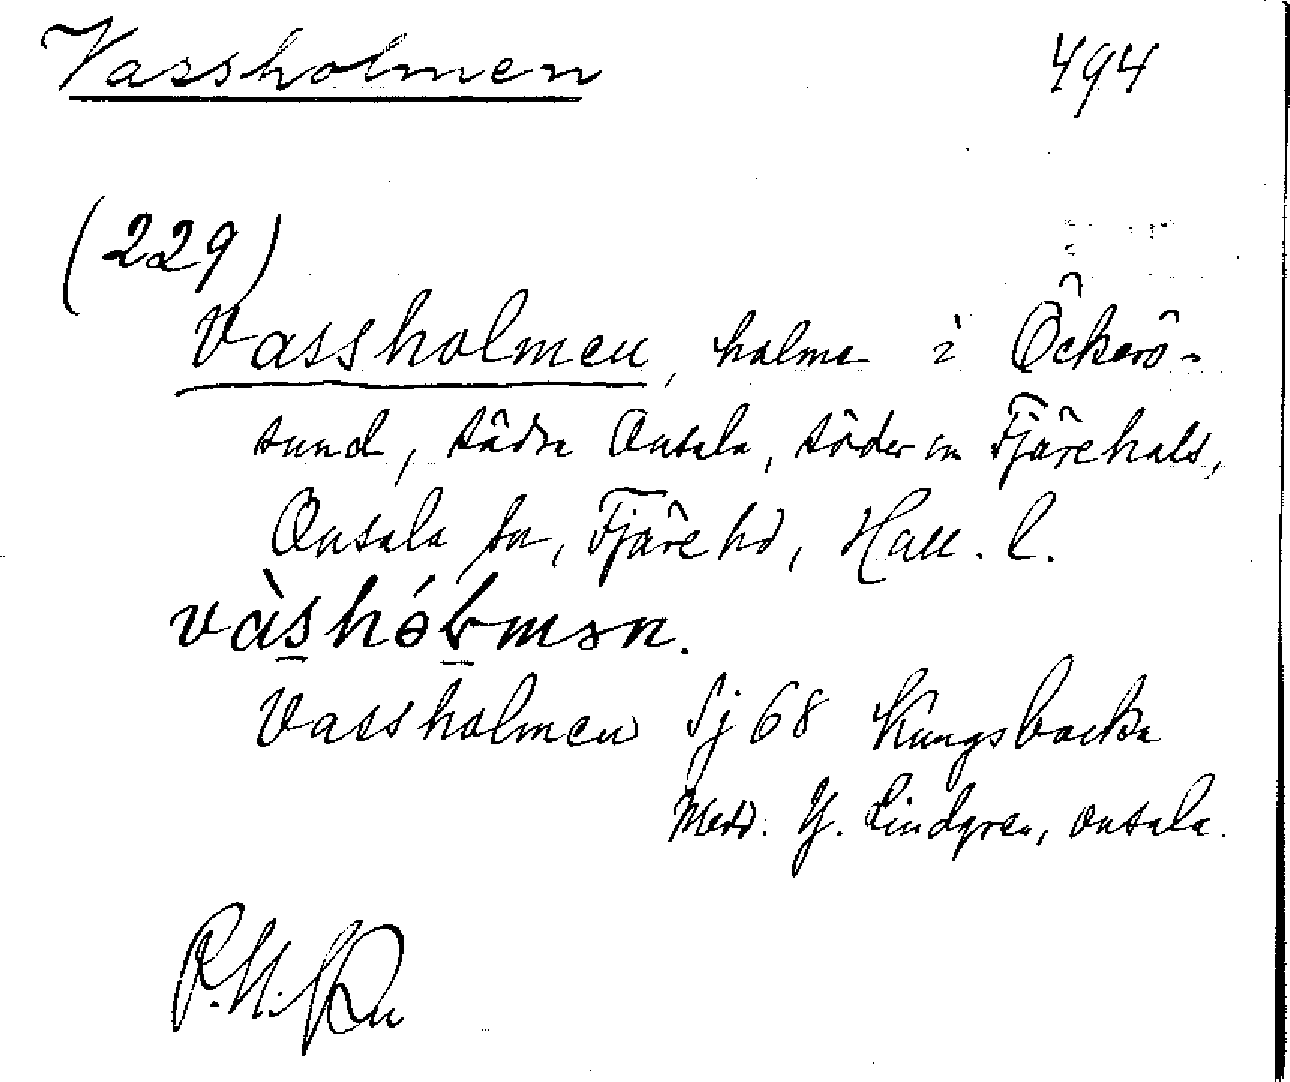 Vassholmen 494
(229)
Vassholmen, holme i Öckerö-
sund, södra Onsala, söder om Fjärehals,
Onsala sn, Fjäre hd, Hall. l.
Vassholmen Sj 68 Kungsbacka
Medd. Y. Lindgren, Onsala.